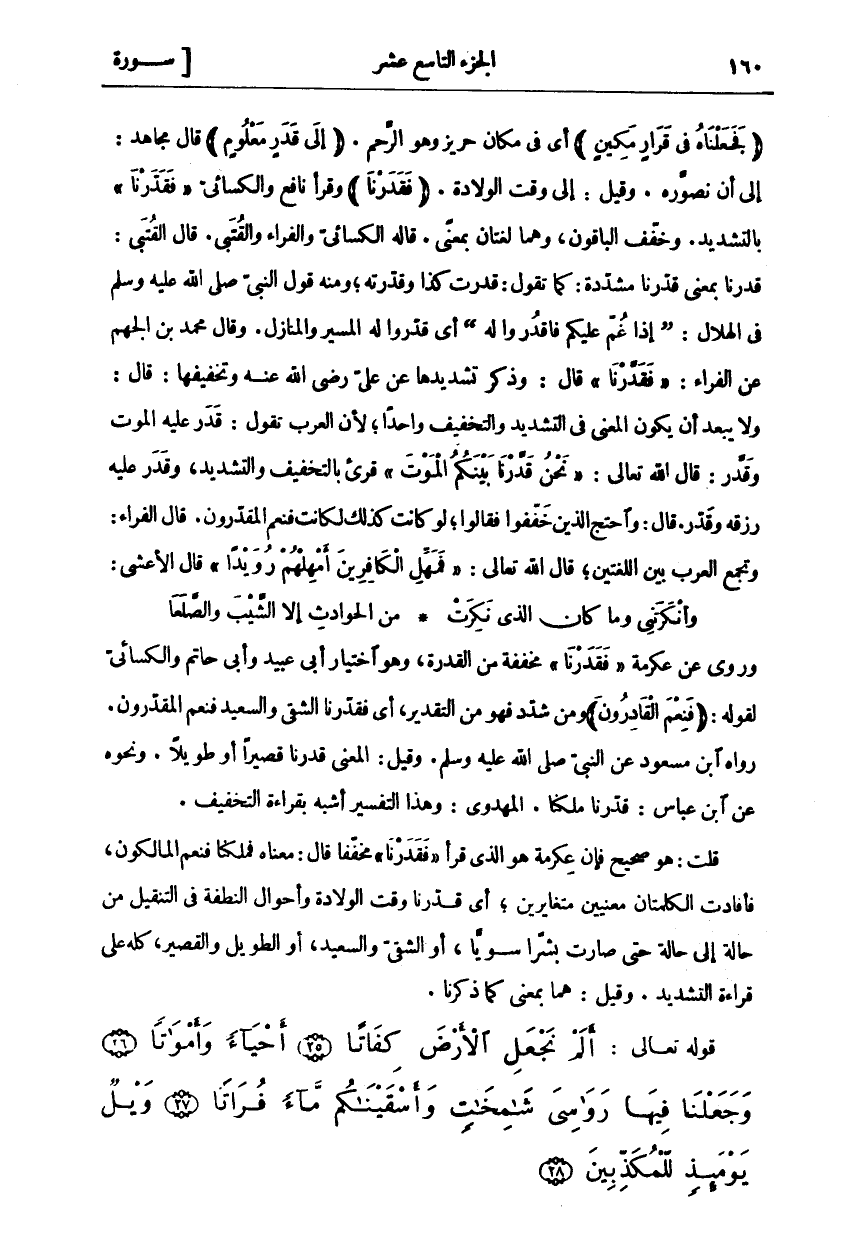 ١٦٠ الجزء التاسع عشر [ ســـورة
﴿ فَجَعَلْنَاهُ فِى قَرَارٍ مَكِينٍ ﴾ أى فى مكان حريز وهو الرَّحم . ﴿ إِلَى قَدَرٍ مَعْلُومٍ ﴾ قال مجاهد :
إلى أن نصوّره . وقيل : إلى وقت الولادة . ﴿ فَقَدَرْنَا ﴾ وقرأ نافع والكسائىّ « فَقَدَّرْنَا »
بالتشديد. وخفّف الباقون، وهما لغتان بمعنًى. قاله الكسائىّ والفراء والقُتَبى. قال القُتَبى :
قدرنا بمعنى قدّرنا مشدّدة: كما تقول: قدرت كذا وقدّرته؛ ومنه قول النبىّ صلى الله عليه وسلم
فى الهلال : " إذا غُمّ عليكم فاقدُروا له " أى قدّروا له المسير والمنازل. وقال محمد بن الجهم
عن الفراء : « فَقَدَّرْنَا » قال : وذكر تشديدها عن علىّ رضى الله عنــه وتخفيفها : قال :
ولا يبعد أن يكون المعنى فى التشديد والتخفيف واحدًا؛ لأن العرب تقول : قَدَر عليه الموت
وقَدَّر : قال الله تعالى : « نَحْنُ قَدَّرْنَا بَيْنَكُمُ الْمَوْتَ » قرئ بالتخفيف والتشديد، وقَدَر عليه
رزقه وقَدّر. قال: وٱحتج الذين خَفّفوا فقالوا؛ لو كانت كذلك لكانت فنعم المقدّرون. قال الفراء:
وتجمع العرب بين اللغتين؛ قال الله تعالى : « فَمَهِّلِ الْكَافِرِينَ أَمْهِلْهُمْ رُوَيْدًا » قال الأعشى :
وأَنْكَرَتْنِى وما كان الذى نَكِرَتْ * من الحوادثِ إلا الشَّيْبَ والصَّلَعَا
وروى عن عكرمة « فَقَدَرْنَا » مخففة من القدرة، وهو ٱختيار أبى عبيد وأبى حاتم والكسائىّ
لقوله: ﴿فَنِعْمَ الْقَادِرُونَ﴾ ومن شدّد فهو من التقدير، أى فقدّرنا الشقى والسعيد فنعم المقدّرون.
رواه ٱبن مسعود عن النبىّ صلى الله عليه وسلم. وقيل: المعنى قدرنا قصيرًا أو طويلًا . ونحوه
عن ٱبن عباس : قدّرنا ملكنا . المهدوى : وهذا التفسير أشبه بقراءة التخفيف .
قلت: هو صحيح فإن عِكرمة هو الذى قرأ «فَقَدَرْنَا» مخفّفا قال: معناه فملكنا فنعم المالكون،
فأفادت الكلمتان معنيين متغايرين ؛ أى قــدّرنا وقت الولادة وأحوال النطفة فى التنقيل من
حالة إلى حالة حتى صارت بشرًا ســويًّا ، أو الشقىّ والسعيد، أو الطويل والقصير، كله على
قراءة التشديد . وقيل : هما بمعنى كما ذكرنا .
قوله تعــالى : أَلَمْ نَجْعَلِ ٱلْأَرْضَ كِفَاتًا ﴿٢٥﴾ أَحْيَآءً وَأَمْوَٰتًا ﴿٢٦﴾
وَجَعَلْنَا فِيهَا رَوَٰسِىَ شَٰمِخَٰتٍ وَأَسْقَيْنَٰكُم مَّآءً فُرَاتًا ﴿٢٧﴾ وَيْلٌ
يَوْمَئِذٍ لِّلْمُكَذِّبِينَ ﴿٢٨﴾